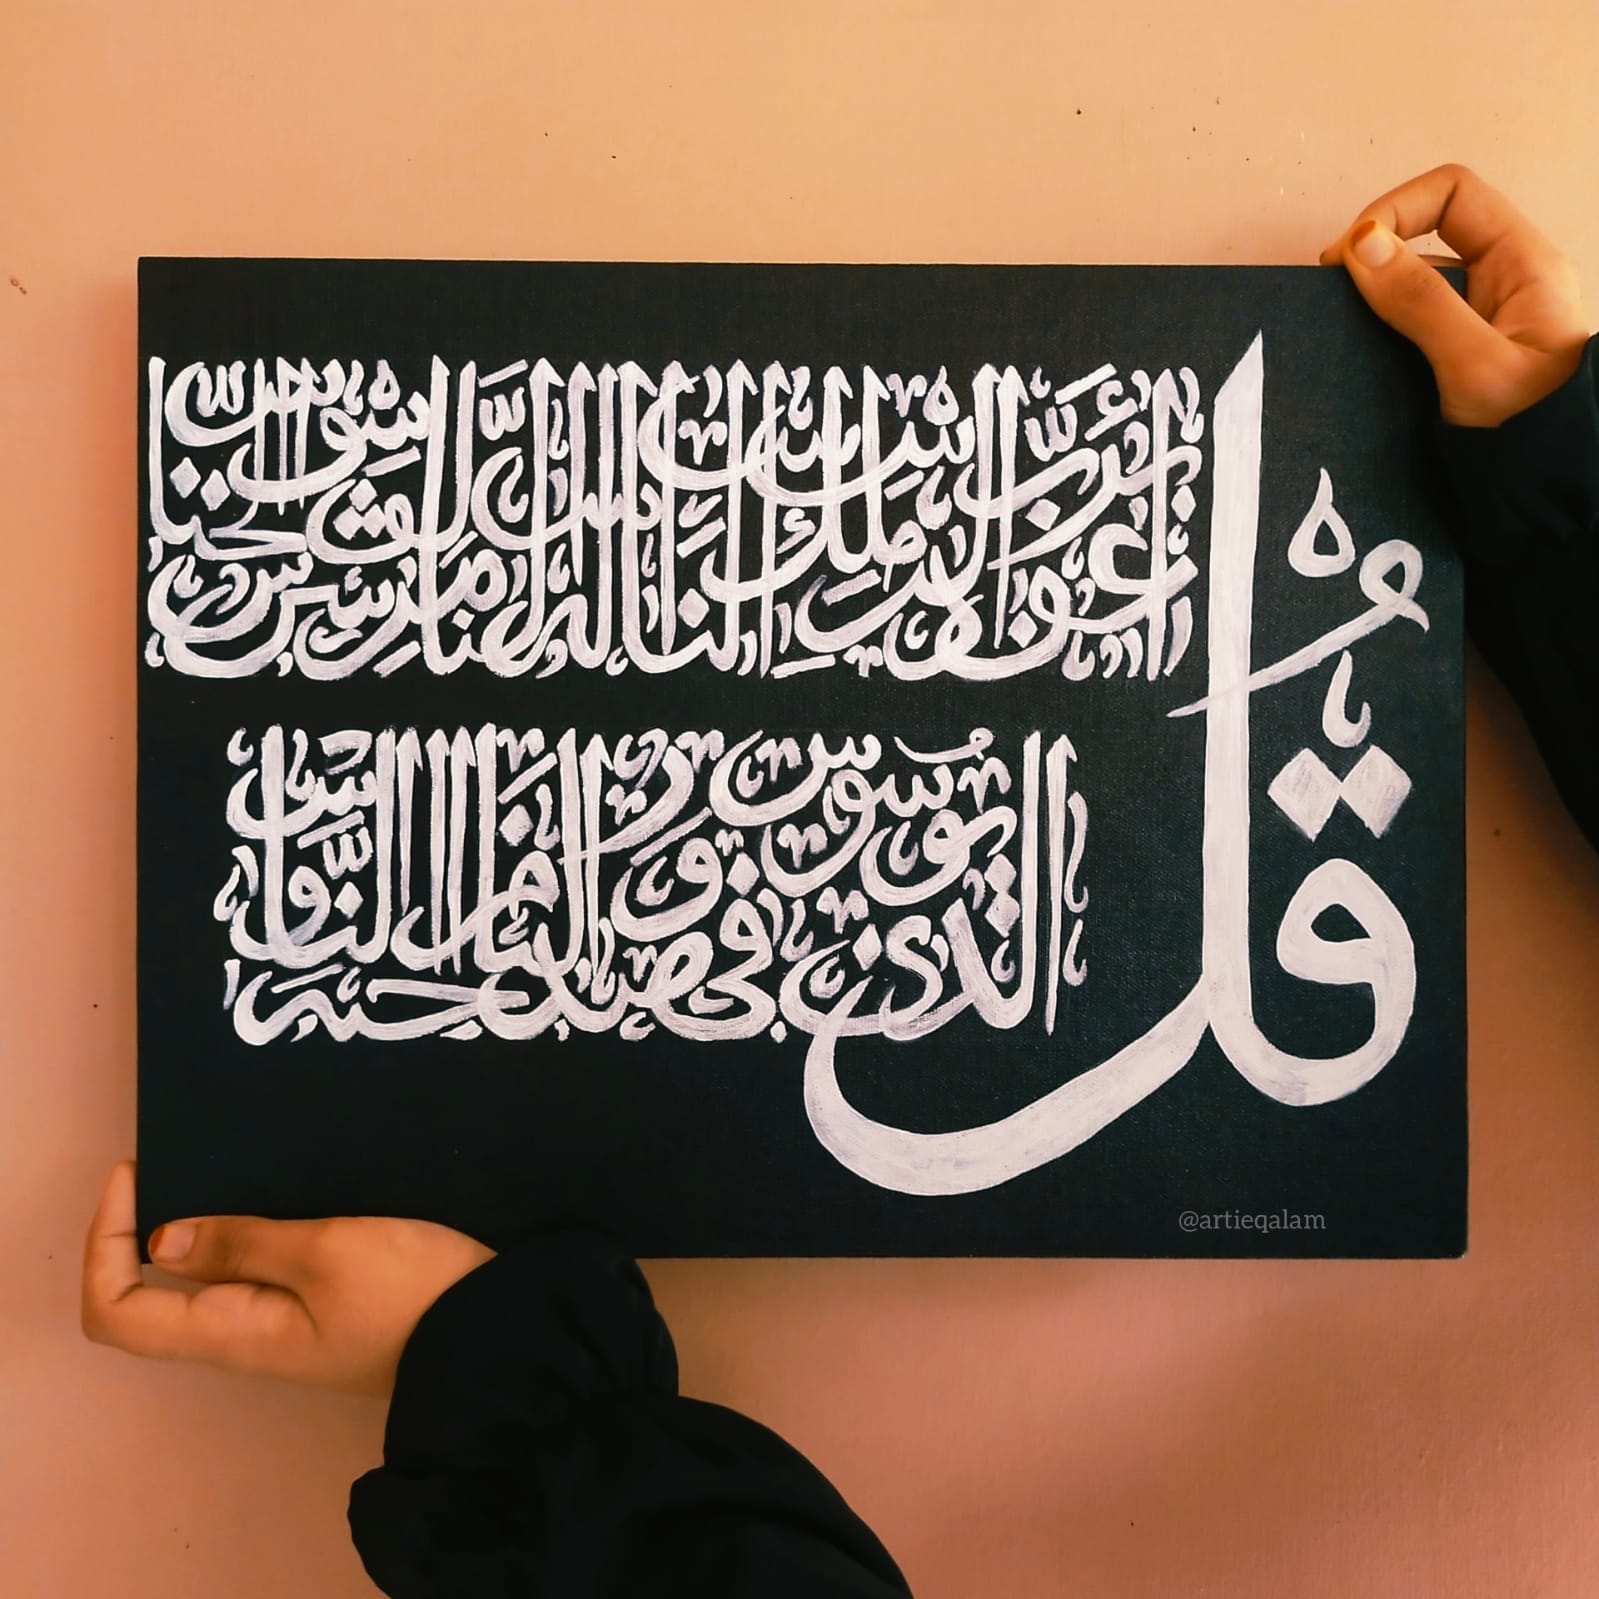 قُلْ
أَعُوذُ بِرَبِّ النَّاسِ مَلِكِ النَّاسِ إِلَٰهِ النَّاسِ مِنْ شَرِّ الْوَسْوَاسِ الْخَنَّاسِ
الَّذِي يُوَسْوِسُ فِي صُدُورِ النَّاسِ مِنَ الْجِنَّةِ وَالنَّاسِ
@artieqalam